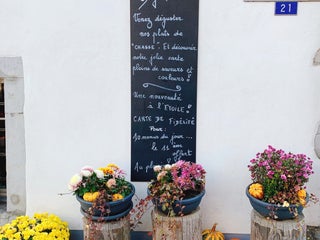 21
Venez déguster
nos plats de
"CHASSE". Et découvrir
notre jolie carte
pleine de saveurs et
couleurs!
Une nouveauté
à l'ÉTOILE!
CARTE DE FIDÉLITÉ
Pour:
10 menus du jour ...
le 11 ème
offert
Au plaisir